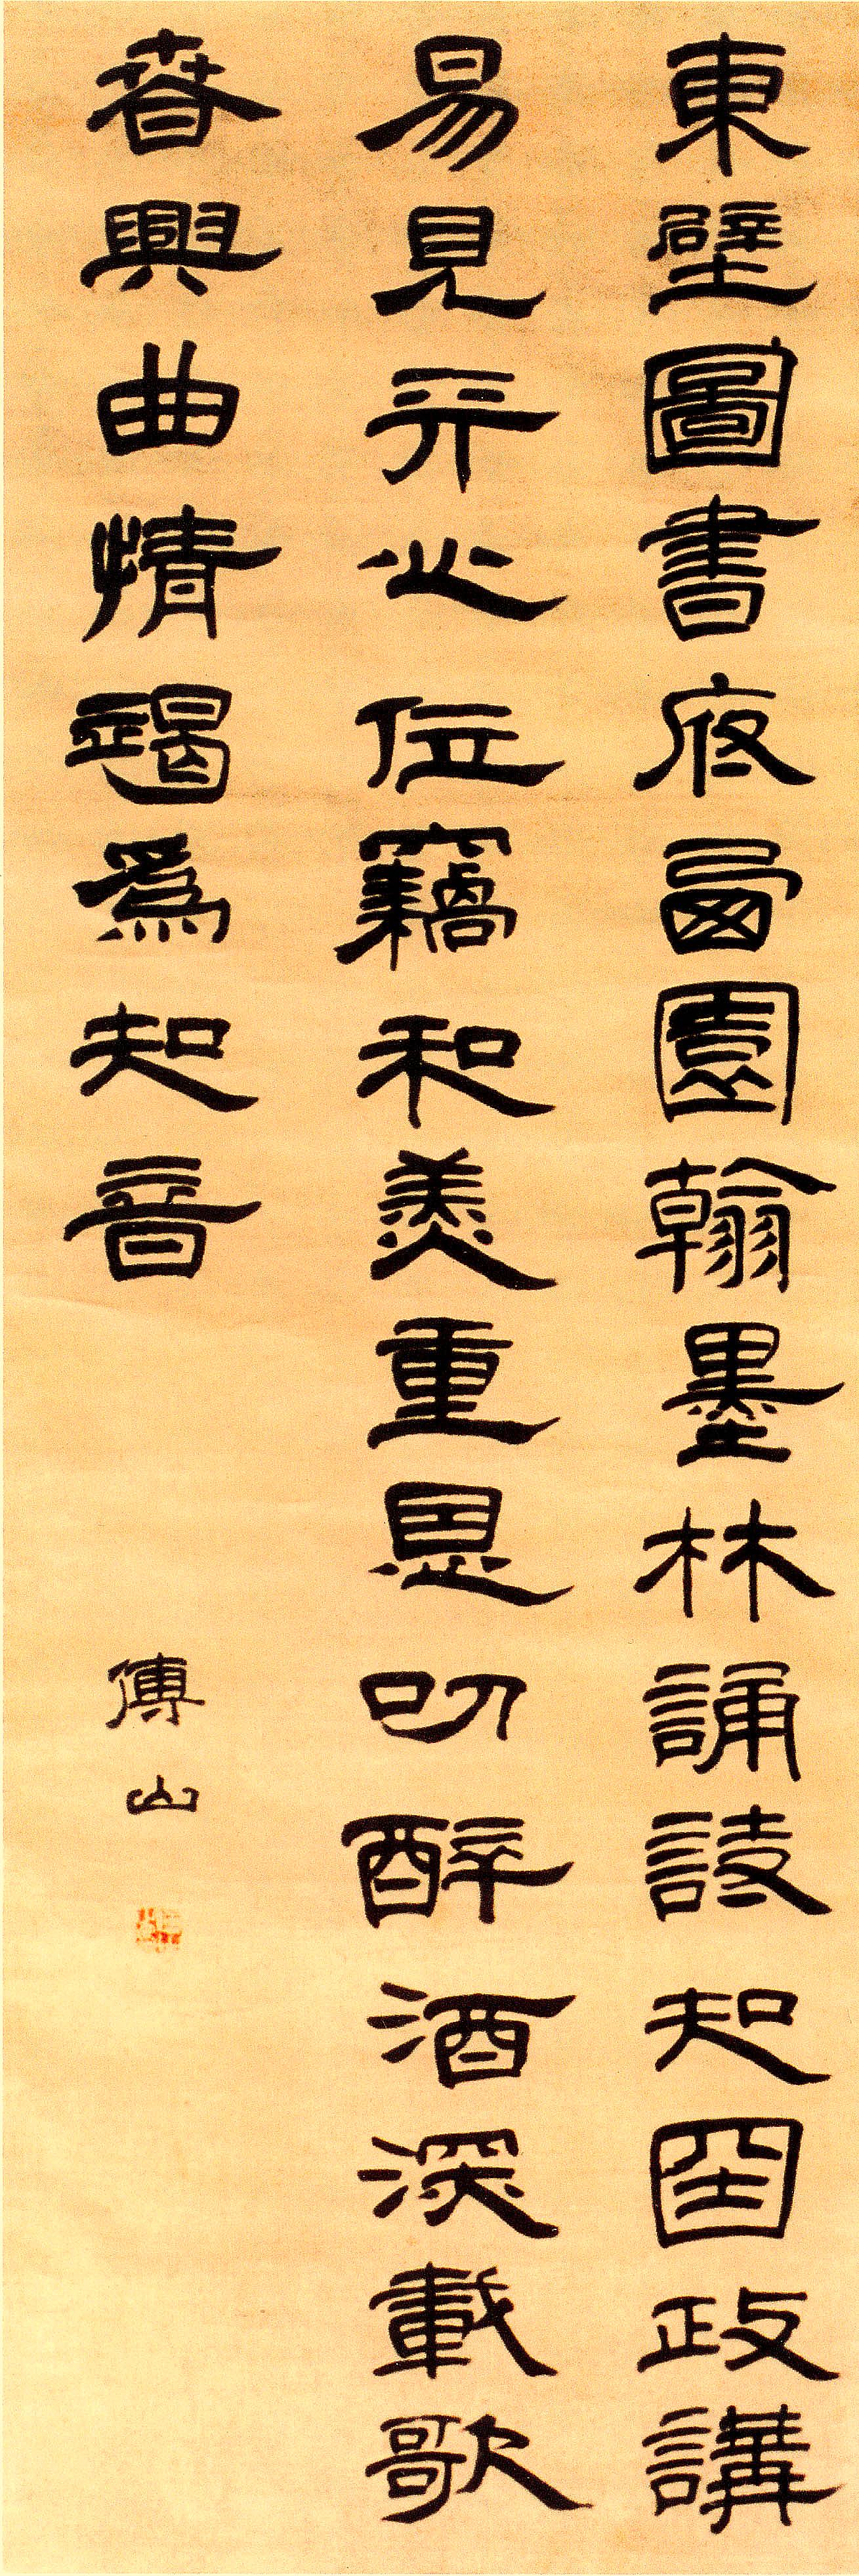 東壁圖書府西園翰墨林誦詩知國政講
易見天心位竊和羹重恩叨醉酒深載歌
春興曲情竭為知音
傅山